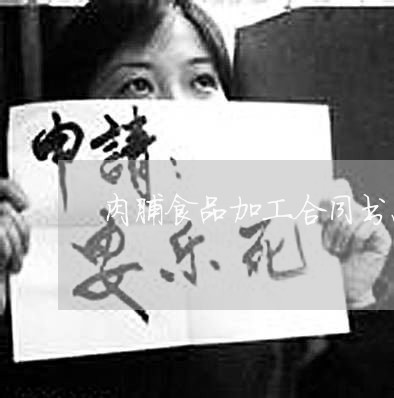 申請：
肉脯食品加工合同书
安乐死